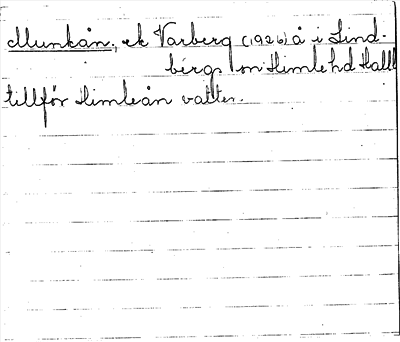 Munkån, ek Varberg (1926) å i Lind-
bergs sn Himle hd Hall
tillför Himleån vatten.